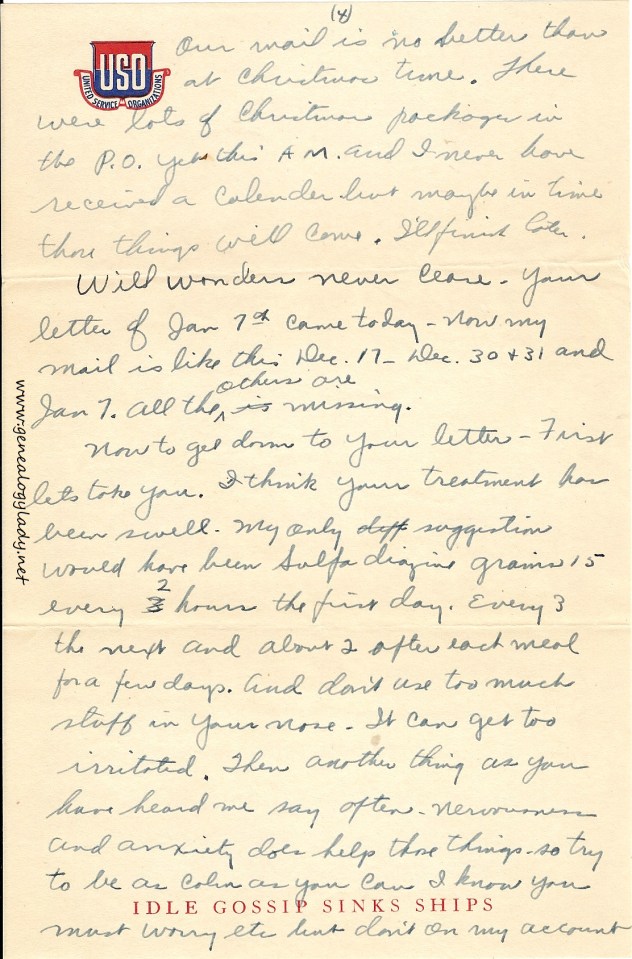 (4)
USO
UNITED SERVICE ORGANIZATIONS
Our mail is no better than
at Christmas time. There
were lots of Christmas packages in
the P.O. yet this A.M. and I never have
received a calender but maybe in time
those things will come. I'll finish later.
Will wonders never cease - Your
letter of Jan 7th came today - Now my
mail is like this Dec. 17 - Dec. 30 + 31 and
others are
Jan 7. All the is missing.
Now to get down to your letter - First
lets take you. I think your treatment has
been swell. My only diff suggestion
would have been Sulfadiazine grains 15
every 2 hours the first day. Every 3
the next and about 2 after each meal
for a few days. And don't use too much
stuff in your nose - It can get too
irritated. Then another thing as you
have heard me say often - nervousness
and anxiety does help those things - so try
to be as calm as you can I know you
IDLE GOSSIP SINKS SHIPS
must worry etc but don't on my account
www.genealogylady.net